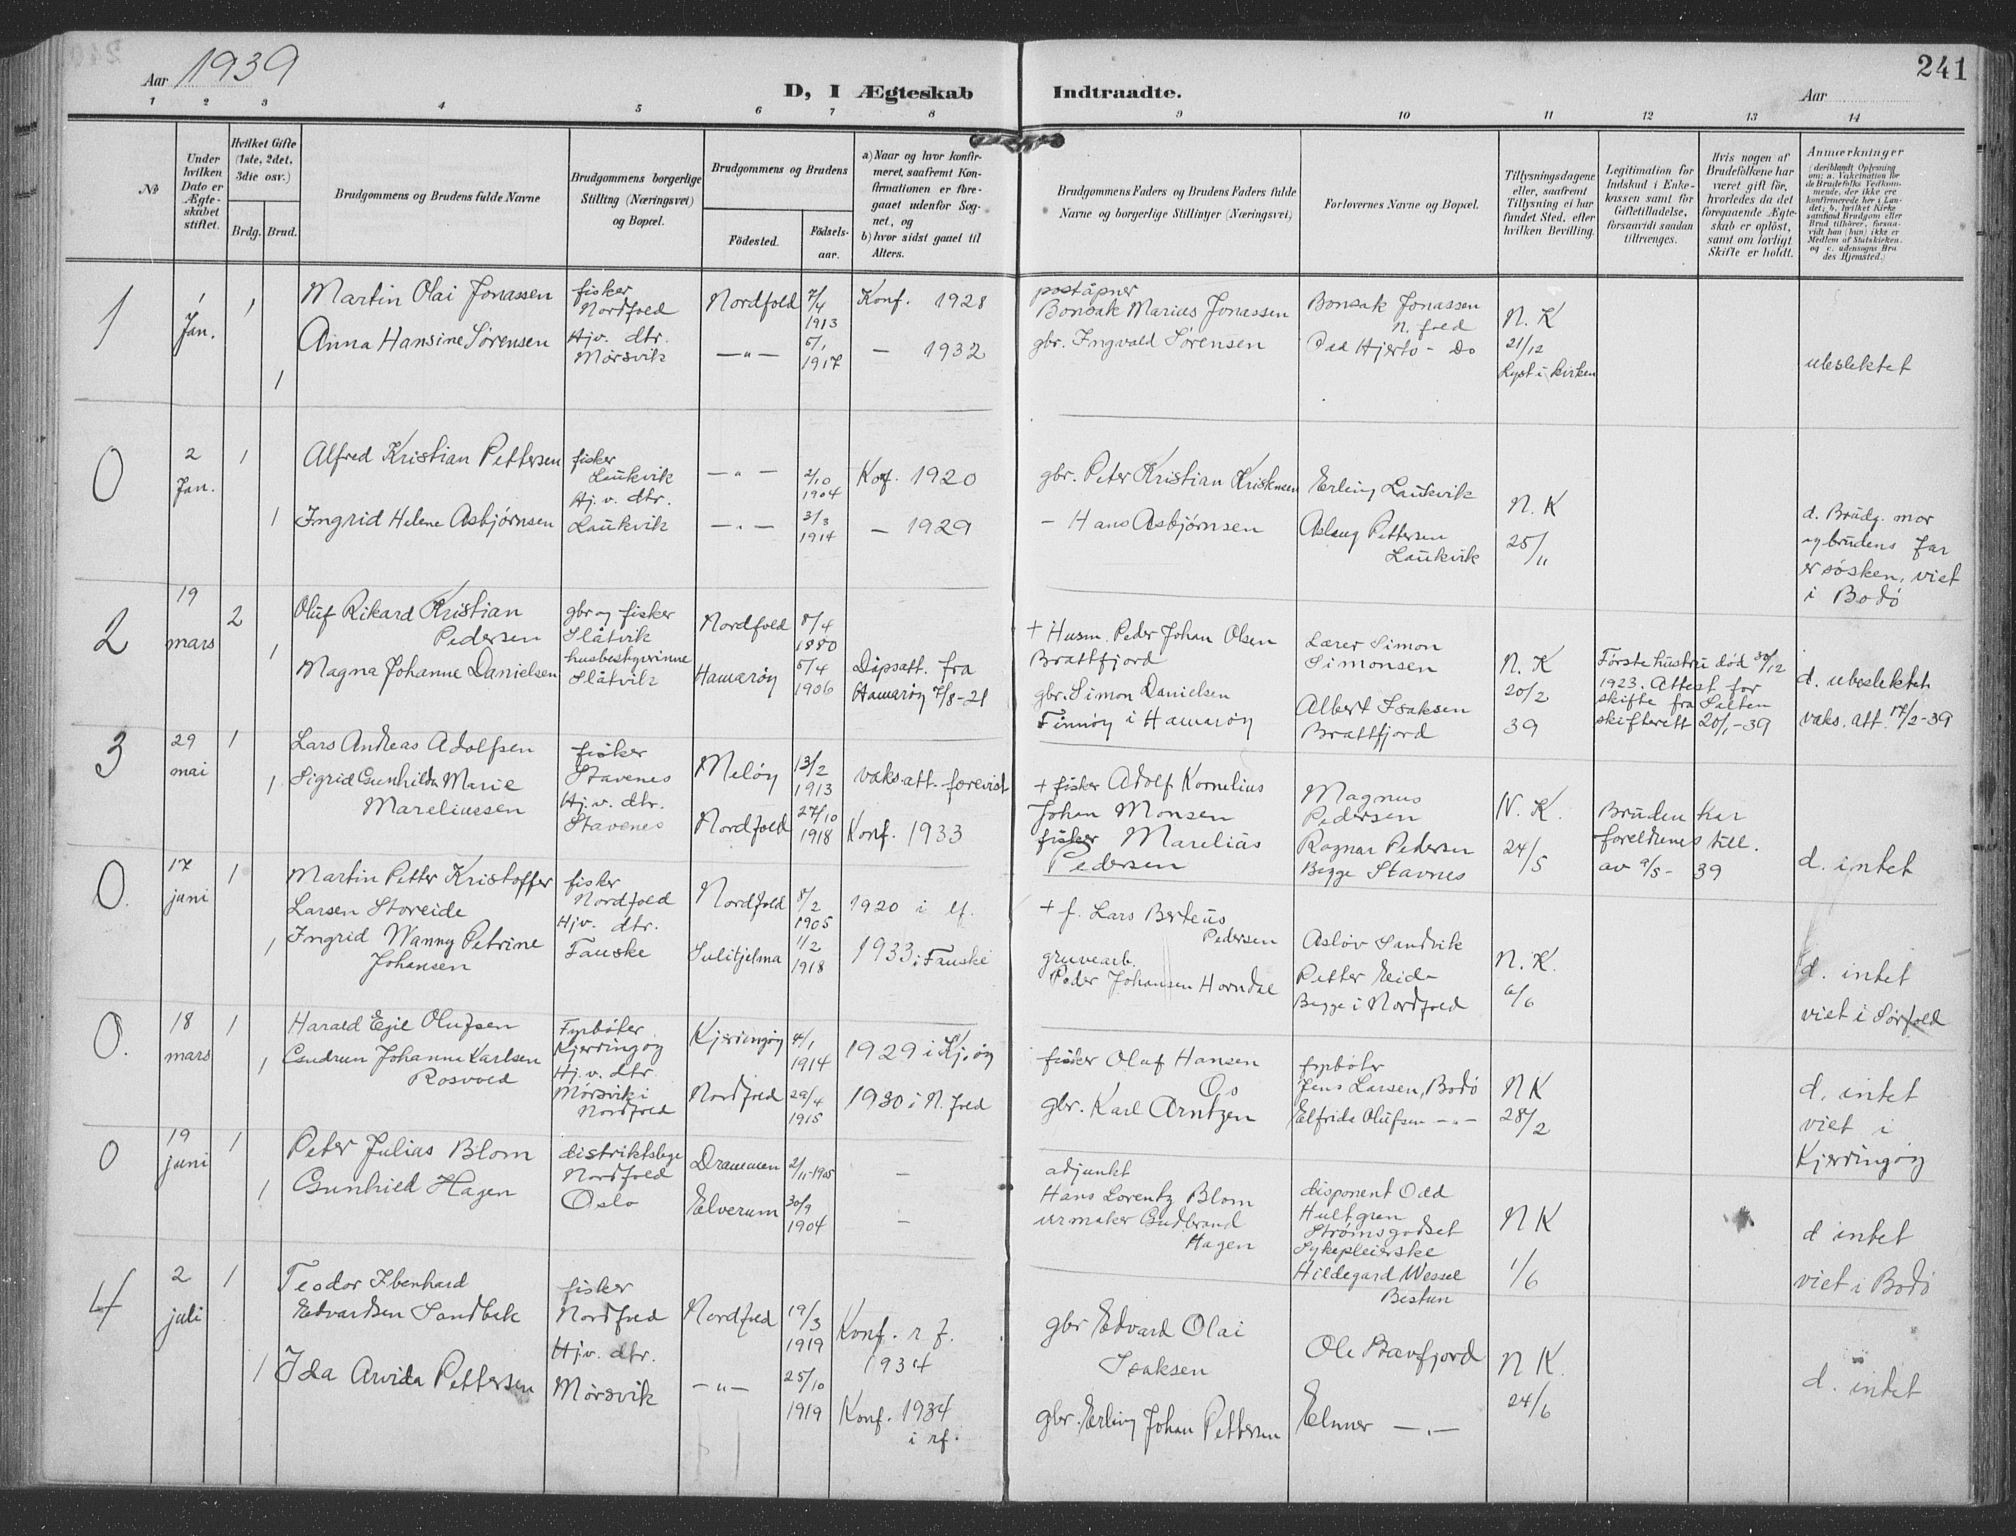 Aar 1939
D, I Ægteskab Indtraadte.
Aar
241
1 2 3 4 5 6 7 8 9 10 11 12 13 14
No
Under hvilken Dato er Ægteskabet stiftet.
Hvilket Gifte (1ste, 2det, 3die osv.)
Brdg. Brud.
Brudgommens og Brudens fulde Navne
Brudgommens borgerlige Stilling (Næringsvei) og Bopæl.
Brudgommens og Brudens
Fødested. Fødselsaar.
a) Naar og hvor konfirmeret, saafremt Konfirmationen er foregaaet udenfor Sognet, og
b) hvor sidst gaaet til Alters.
Brudgommens Faders og Brudens Faders fulde Navne og borgerlige Stillinger (Næringsvei)
Forlovernes Navne og Bopæl.
Tillysningsdagene eller, saafremt Tillysning ei har fundet Sted, efter hvilken Bevilling.
Legitimation for Indskud i Enkekassen samt for Giftetilladelse, forsaavidt saadan tiltrænges.
Hvis nogen af Brudefolkene har været gift før, hvorledes da det foregaaende Ægteskab er opløst, samt om lovligt Skifte er holdt.
Anmærkninger
(deriblandt Oplysning om: a. Vakcination for de Brudefolks Vedkommende, der ikke ere konfirmerede her i Landet; b. hvilket Kirkesamfund Brudgom eller Brud tilhører, forsaavidt han (hun) ikke er Medlem af Statskirken, og c. udensogns Brudes Hjemsted.)
1
1 Jan.
1
Martin Olai Jonassen
fisker Nordfold
Nordfold
7/4 1913
Konf. 1928
poståpner
Bonsak Marius Jonassen
Bonsak Jonassen
N. fold
N. K
1
Anna Hansine Sørensen
Hj.v. dtr. Mørsvik
— " —
5/1 1917
— 1932
gbr. Ingvald Sørensen
Paa Hjerto - Do
21/12
Lyst i kirken
ubeslektet
0
2 Jan.
1
Alfred Kristian Pettersen
fisker Laukvik
— " —
2/10 1904
Konf. 1920
gbr. Peter Kristian Kristensen
Erling Laukvik
N. K
1
Ingrid Helene Asbjørnsen
Hj.v. dtr. Laukvik
— " —
3/3 1914
— 1929
— Hans Asbjørnsen
Aslaug Pettersen
Laukvik
25/11
d. Brudg. mor
og brudens far
er søsken, viet
i Bodø
2
19 mars
2
Oluf Rikard Kristian
Pedersen
gbr og fisker Slåtvik
Nordfold
8/4 1880
+ Husm. Peder Johan Olsen
Brattfjord
Lærer Simon
Simonsen
N. K
Første hustru død 30/12
1923. Attest for
skifte fra Salten
skifterett 20/1-39
d. ubeslektet
1
Magna Johanne Danielsen
husbestyrerinne Slåtvik
Hamarøy
5/4 1906
Dåpsatt. fra
Hamarøy 7/8-21
gbr. Simon Danielsen
Finnøy i Hamarøy
Albert Isaksen
Brattfjord
20/2
39
vaks. att. 17/2-39
3
29 mai
1
Lars Andreas Adolfsen
fisker Stavenes
Meløy
13/2 1913
vaks. att. forevist
+ fisker Adolf Kornelius
Johan Monsen
Magnus
Pedersen
N. K.
Bruden har
foreldrenes till.
av 9/5-39
1
Sigrid Gunhilda Marie
Mareliussen
Hj.v. dtr. Stavenes
Nordfold
27/10 1918
Konf. 1933
fisker Marelius
Pedersen
Ragnar Pedersen
Begge Stavnes
24/5
d. intet
0.
17 juni
1
Martin Petter Kristoffer
Larsen Storeide
fisker Nordfold
Nordfold
8/2 1905
1920 i
+ f. Lars Berteus
Pedersen
Asløv Sandvik
N. K.
1
Ingrid Wanny Petrine
Johansen
Hjv. dtr. Fauske
Sulitjelma
1/2 1918
1933 i Fauske
gruvearb.
Peder Johansen Horndal
Petter Eide
Begge i Nordfold
6/6
d. intet
viet i Sørfold
0.
18 mars
1
Harald Egil Olufsen
Fyrbøter Kjerringøy
Kjerringøy
4/1 1914
1929 i Kj.øy
fisker Oluf Hansen
Os
fyrbøter
Jens Larsen, Bodø
N K
1
Gudrun Johanne Karlsen
Rosvold
Hj.v. dtr. Mørsvik i Nordfold
Nordfold
29/4 1915
1930 i N. fold
gbr. Karl Arntzen
Elfrida Olufsen — " —
28/2
d. intet
viet i
Kjerringøy
0
19 juni
1
Peter Julius Blom
distriktslege Nordfold
Drammen
2/11-1905
—
adjunkt
Hans Lorentz Blom
disponent Odd
Hultgren
Strømsgodset
N K
1
Gunhild Hagen
Oslo
Elverum
30/9 1904
—
urmaker Gudbrand
Hagen
Sykepleierske
Hildegard Wessel
Bestun
1/6
d intet
viet i Bodø
4
2 juli
1
Teodor Ibenhard
Edvardsen Sandbak
fisker Nordfold
Nordfold
19/3 1919
Konf. r f.
1934
gbr Edvard Olai
Isaksen
Ole Bævfjord
N K.
1
Ida Arvida Pettersen
Hjv. dtr. Mørsvik
— " —
25/10 1919
Konf. 1934
i rf.
gbr. Erling Johan Pettersen
Elmer — " —
24/6
d. intet